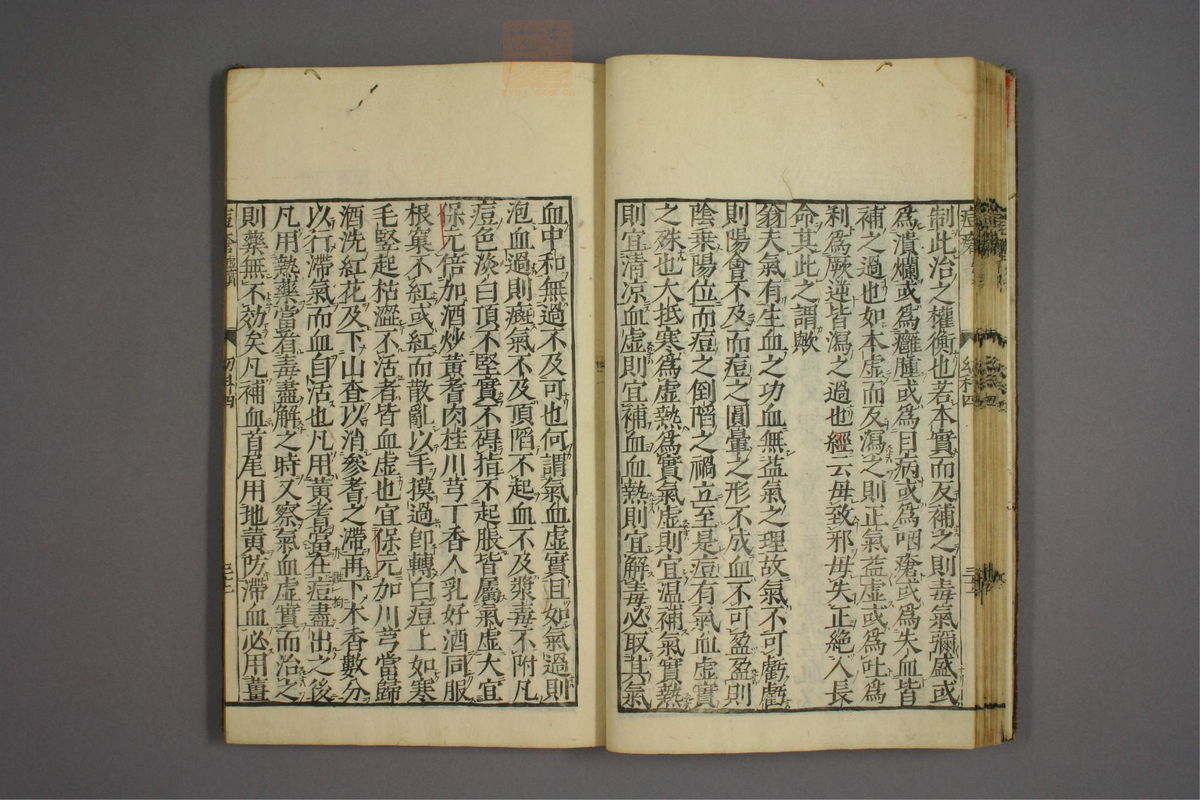 制此治之權衡也若本實而反補之則毒氣彌盛或
為潰爛或為癰腫或為目病或為咽瘡或為失血皆
補之過也如本虛而反瀉之則正氣益虛或為吐為
利為厥逆皆瀉之過也經云毋致邪毋失正絕人長
命其此之謂歟
翁夫氣有生血之功血無益氣之理故氣不可虧虧
則陽會不及而痘之圓暈之形不成血不可盈盈則
陰乗陽位而痘之倒陷之禍立至是痘有氣血虛實
之殊也大抵寒為虛熱為實氣虛則宜温補氣實熱
則宜清凉血虛則宜補血血熱則宜解毒必取其氣
血中和無過不及可也何謂氣血虛實且如氣過則
泡血過則癍氣不及頂陷不起血不及漿毒不附凡
痘色淡白頂不堅實不碍指不起脹皆屬氣虛大宜
保元倍加酒炒黃耆肉桂川芎丁香人乳好酒同服
根窠不紅或紅而散亂以手摸過卽轉白痘上如寒
毛竪起枯澀不活者皆血虛也宜保元加川芎當歸
酒洗紅花及下山查以消參耆之滯再下木香數分
以行滯氣而血自活也凡用黃耆當在痘盡出之後
凡用熱藥當看毒盡解之時又察氣血虛實而治之
則藥無不効矣凡補血首尾用地黃防滯血必用薑